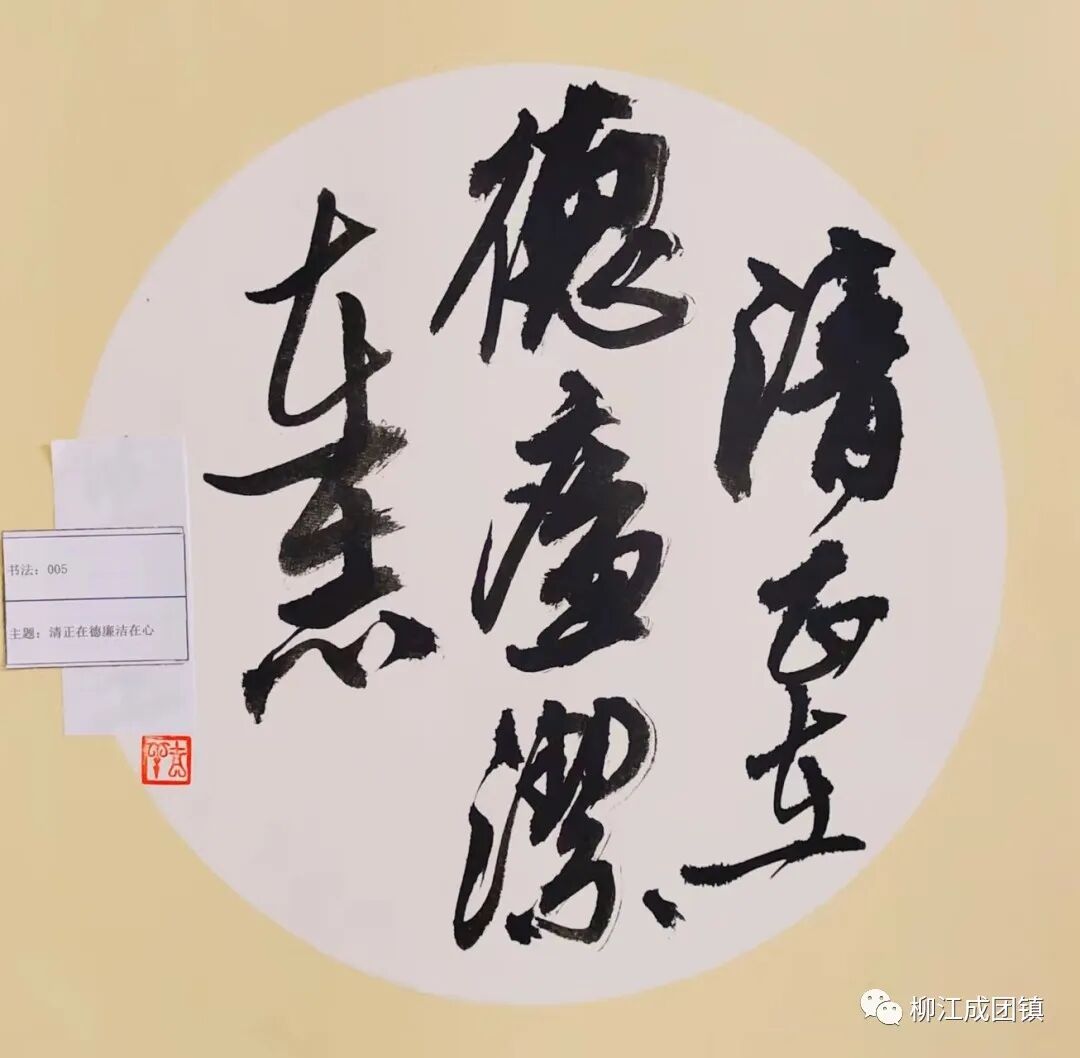 清正在
德廉潔
在志
书法：005
主题：清正在德廉洁在心
柳江成团镇